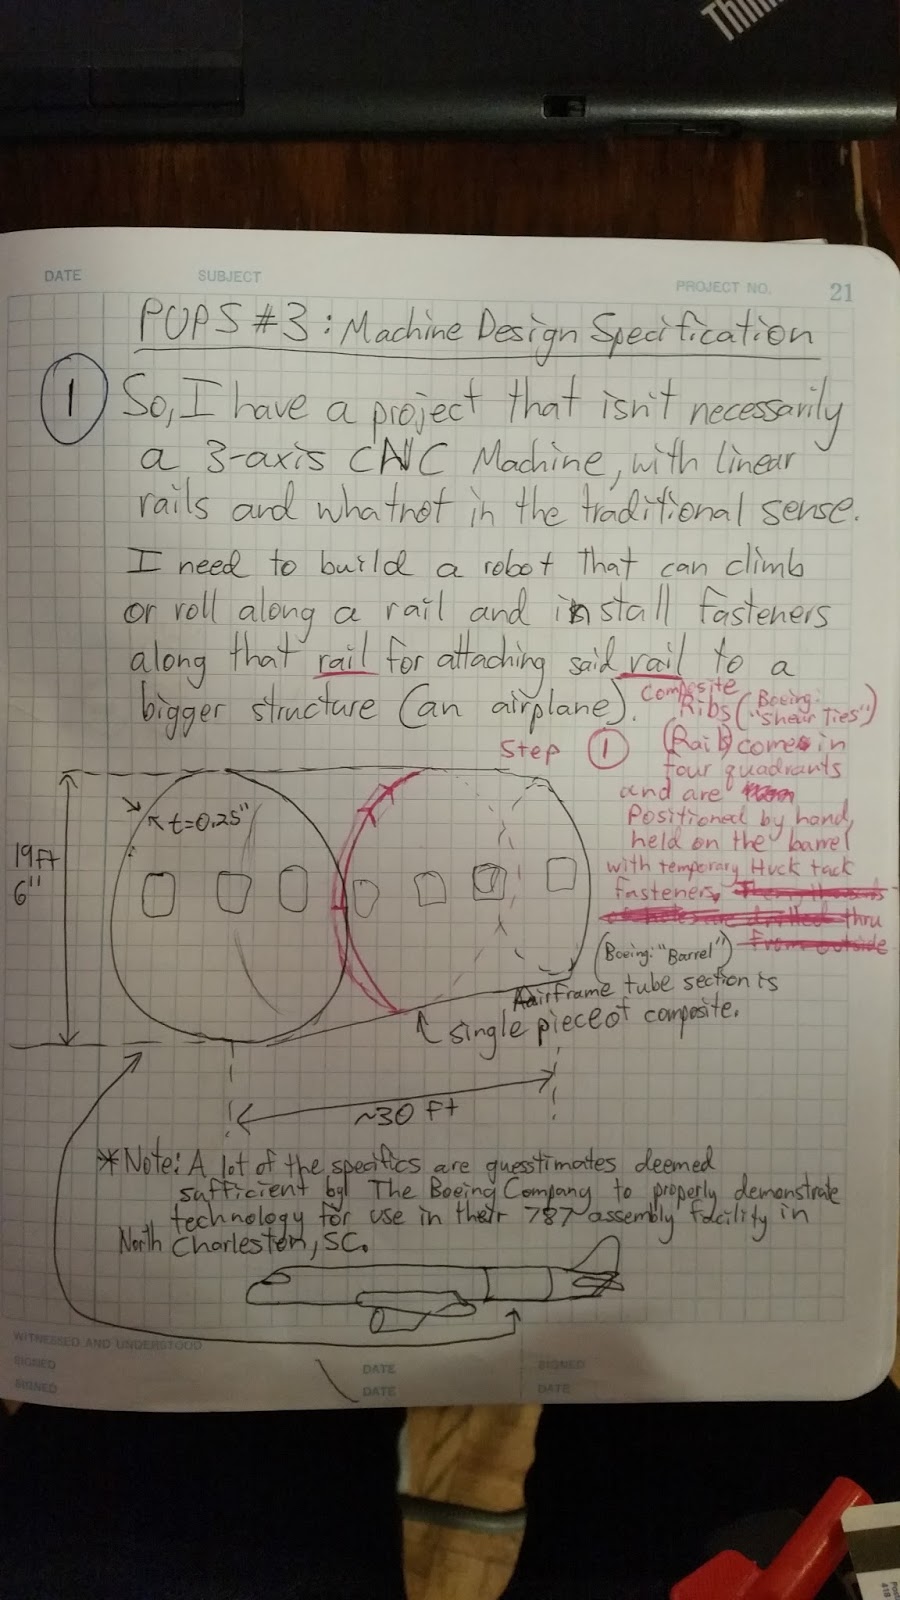 Thin
DATE
SUBJECT
PROJECT NO.
21
PUPS #3: Machine Design Specification
1
So, I have a project that isn't necessarily
a 3-axis CNC Machine, with linear
rails and whatnot in the traditional sense.
I need to build a robot that can climb
or roll along a rail and install fasteners
along that rail for attaching said rail to a
bigger structure (an airplane).
Step 1
Composite
Ribs (Boeing: "Shear Ties")
(Rail) comes in
four quadrants
and are
Positioned by hand,
held on the barrel
with temporary Huck tack
fasteners.
thru
from outside
t=0.25"
19ft
6"
(Boeing: "Barrel")
Airframe tube section is
single piece of composite.
~30 ft
*Note: A lot of the specifics are guesstimates deemed
sufficient by The Boeing Company to properly demonstrate
technology for use in their 787 assembly facility in
North Charleston, SC.
WITNESSED AND UNDERSTOOD
SIGNED
DATE
SIGNED
SIGNED
DATE
DATE